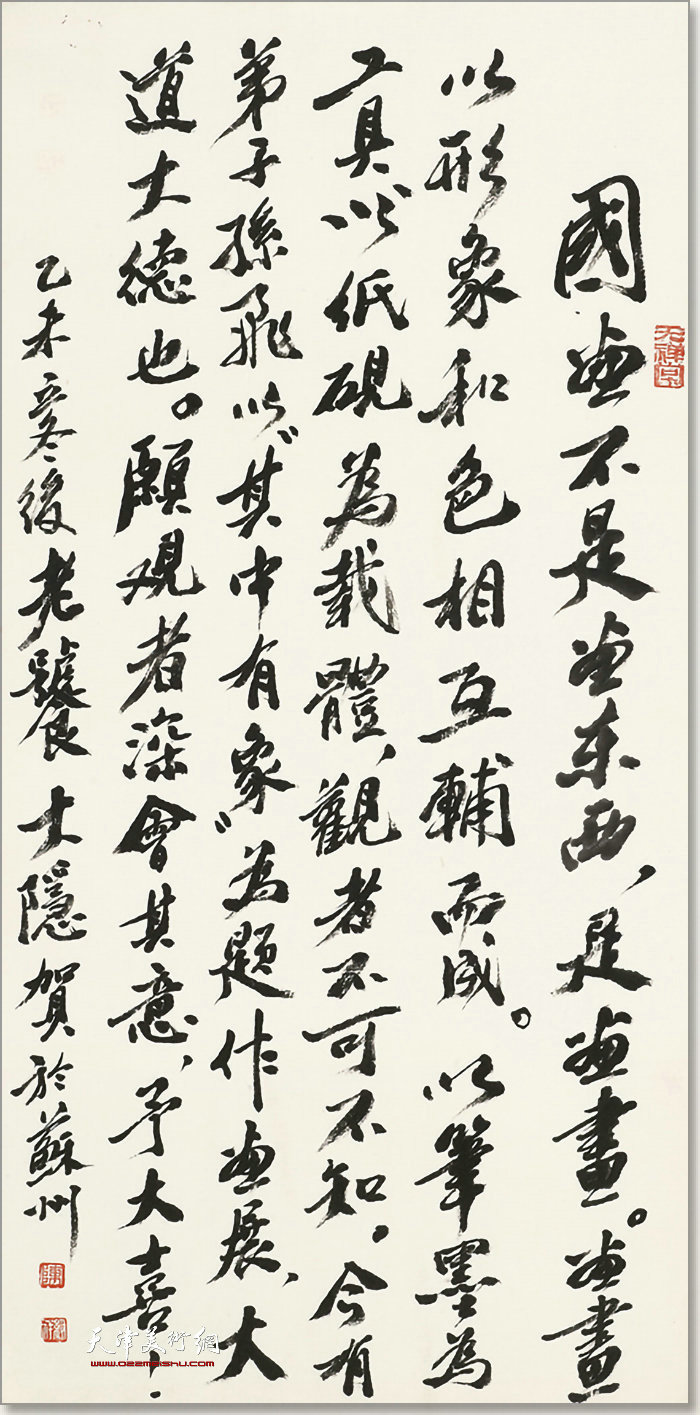 國画不是画东西、是画畫。画畫
以形象和色相互輔而成。以筆墨為
工具以紙硯為载體、觀者不可不知。今有
弟子孫飛以“其中有象”為题作画展、大
道大德也。願观者深會其意、予大喜!
乙未立冬後老饕士隱贺於蘇州
天津美術網
www.022meishu.com